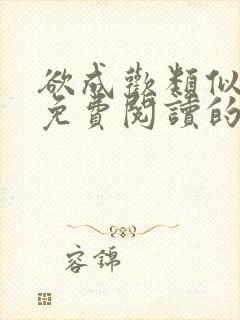 欲成歡類似
免費閱讀的
容錦